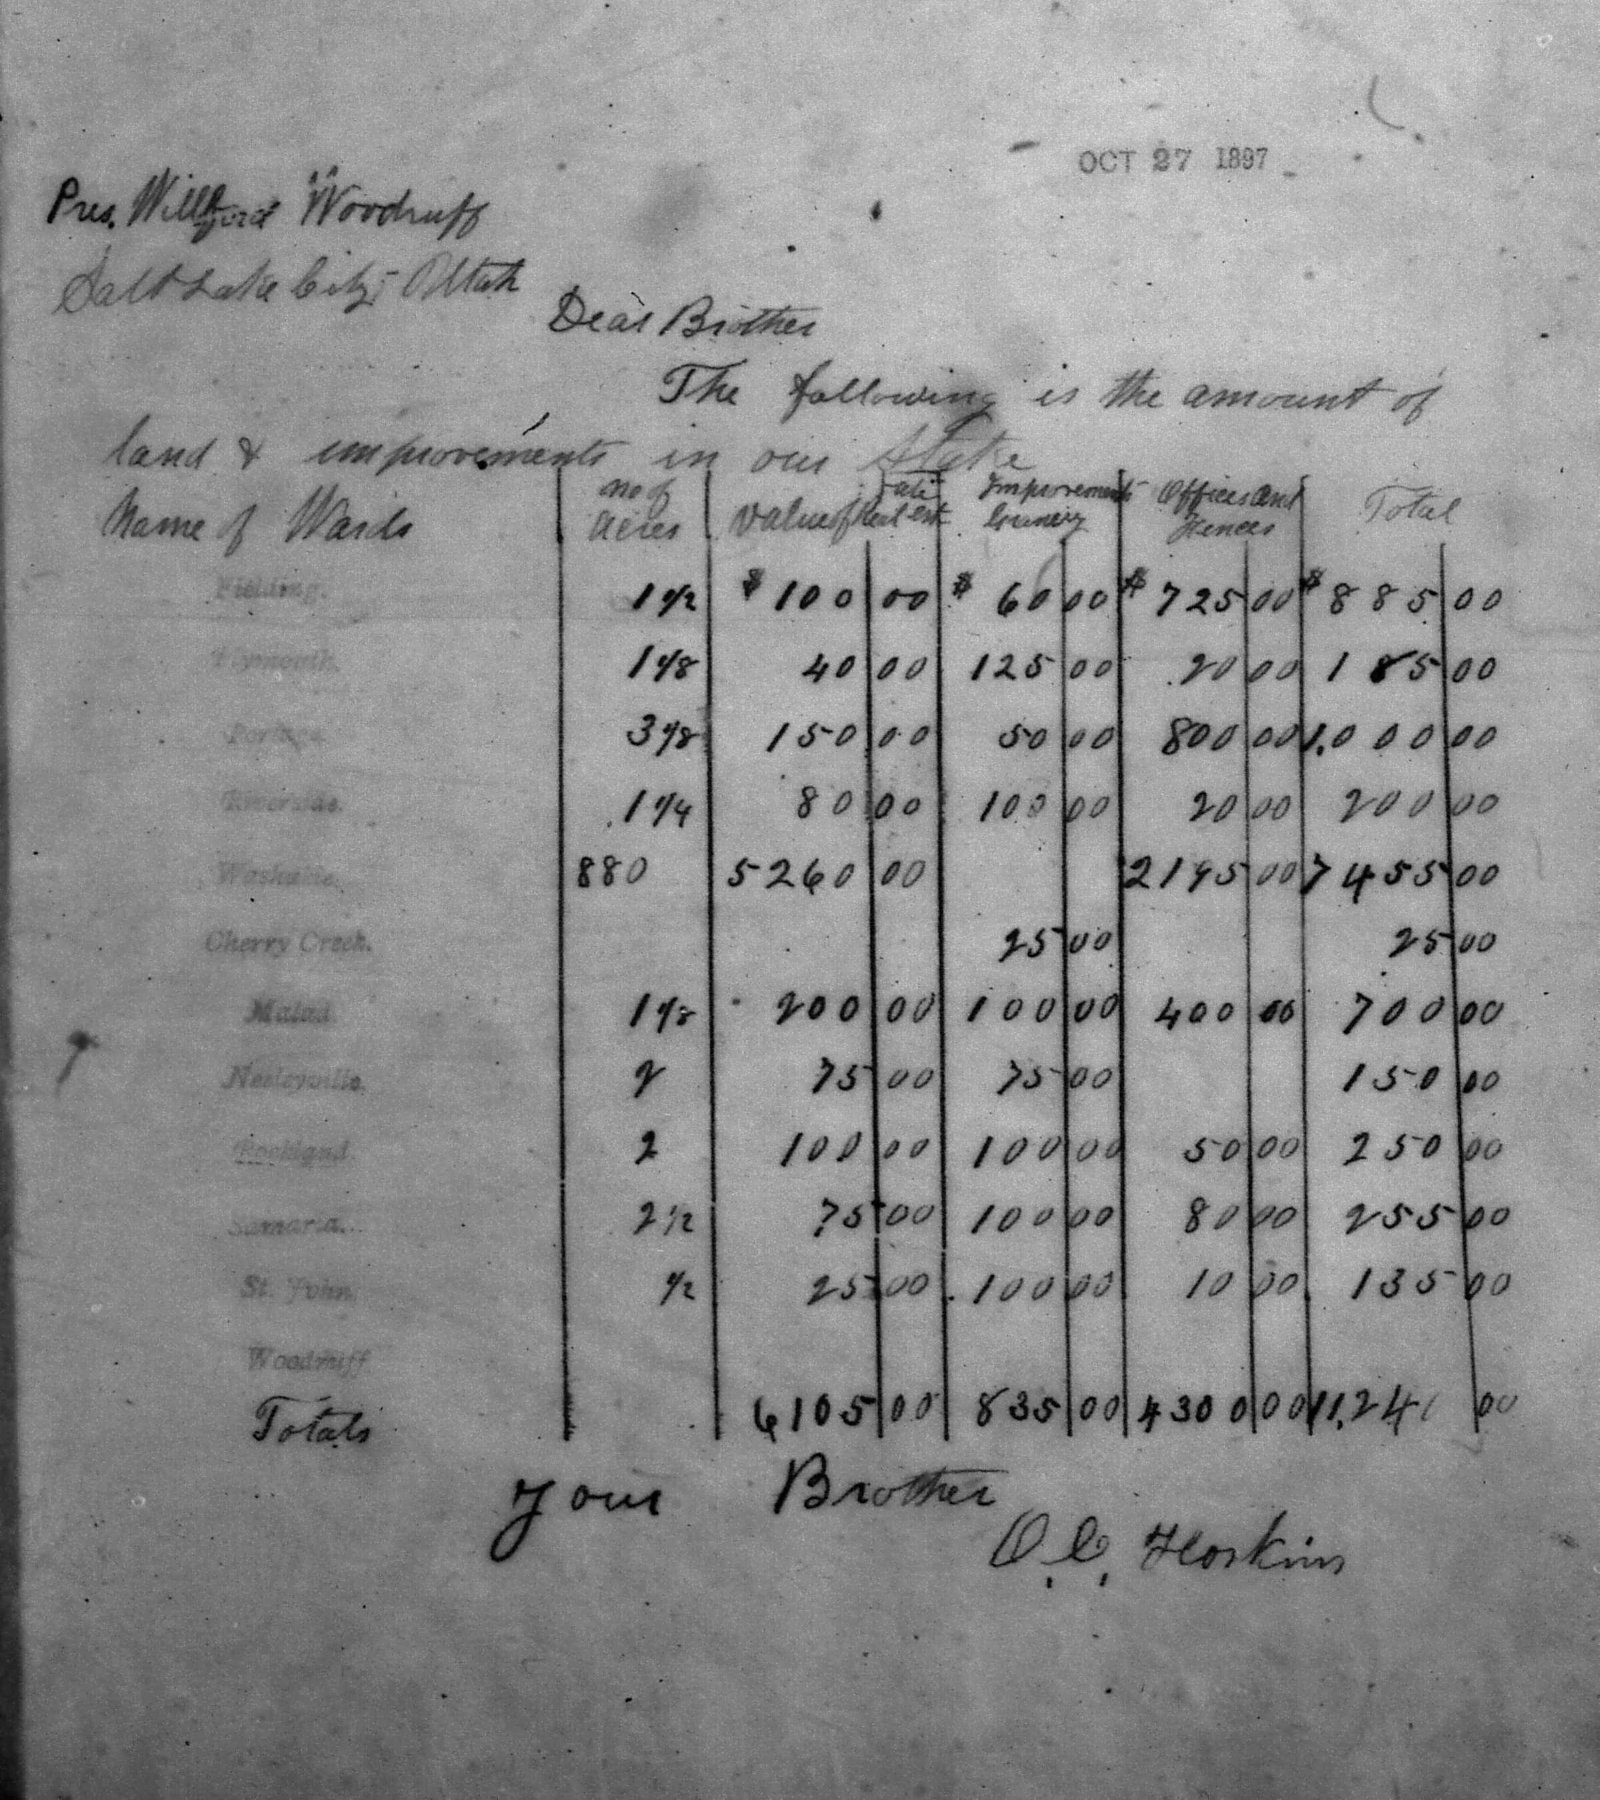 OCT 27 1897
Pres. Willford Woodruff
Salt Lake City, Utah
Dear Brother
The following is the amount of
land & improvements in our Stake
Name of Wards no of Acres Value of Real est Improvements Granery Offices and Fences Total
Fielding. 1 1/2 $ 100 00 $ 60 00 $ 725 00 $ 885 00
Plymouth. 1 1/8 40 00 125 00 20 00 185 00
Portage. 3 1/8 150 00 50 00 800 00 1,000 00
Riverside. 1 1/4 80 00 100 00 20 00 200 00
Washakie. 880 5260 00 2195 00 7455 00
Cherry Creek. 25 00 25 00
Malad. 1 1/8 200 00 100 00 400 00 700 00
Neeleyville. 2 75 00 75 00 150 00
Rockland. 2 100 00 100 00 50 00 250 00
Samaria. 2 1/2 75 00 100 00 80 00 255 00
St. John. 1/2 25 00 100 00 10 00 135 00
Woodruff
Totals 6105 00 835 00 4300 00 11,24 00
Your Brother
O. C. Hoskins